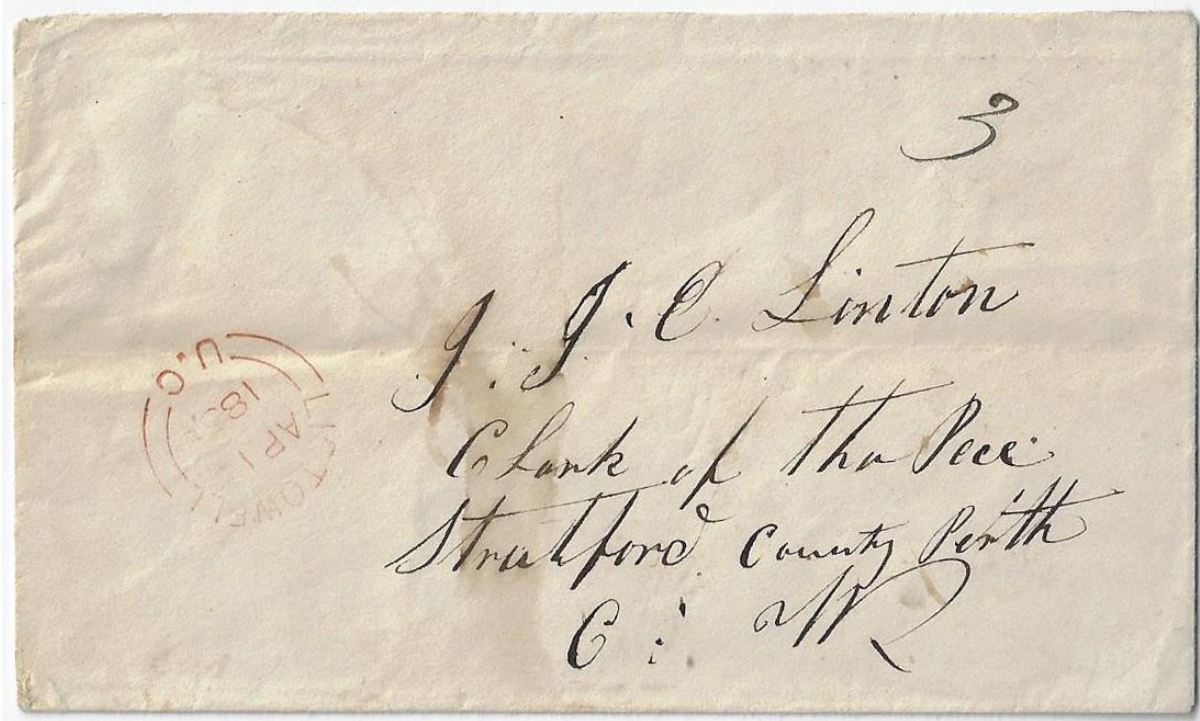 3
J. J. C. Linton
Clark of tha Pece
Stratford County Perth
C: W
LISTOWELL
U.C
AP 1